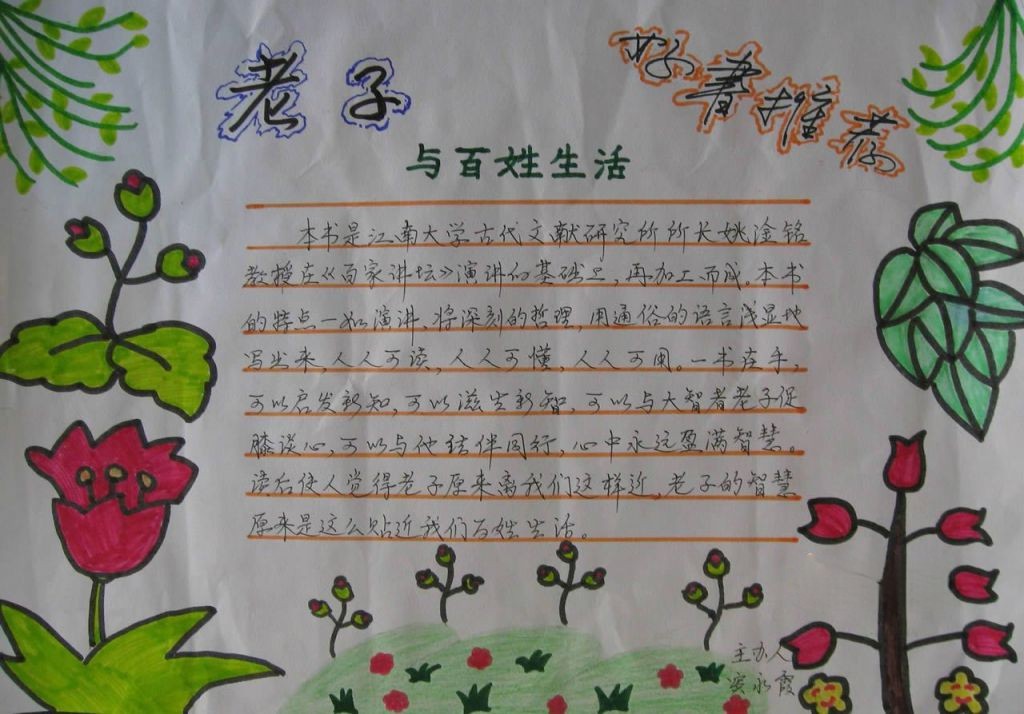 老子
好书推荐
与百姓生活
本书是江南大学古代文献研究所所长姚淦铭
教授在《百家讲坛》演讲的基础上,再加工而成。本书
的特点一如演讲,将深刻的哲理,用通俗的语言浅显地
写出来,人人可读,人人可懂,人人可用。一书在手,
可以启发新知,可以滋生新智,可以与大智者老子促
膝谈心,可以与他结伴同行,心中永远盈满智慧。
读后使人觉得老子原来离我们这样近,老子的智慧
原来是这么贴近我们百姓生活。
主办人
安永霞